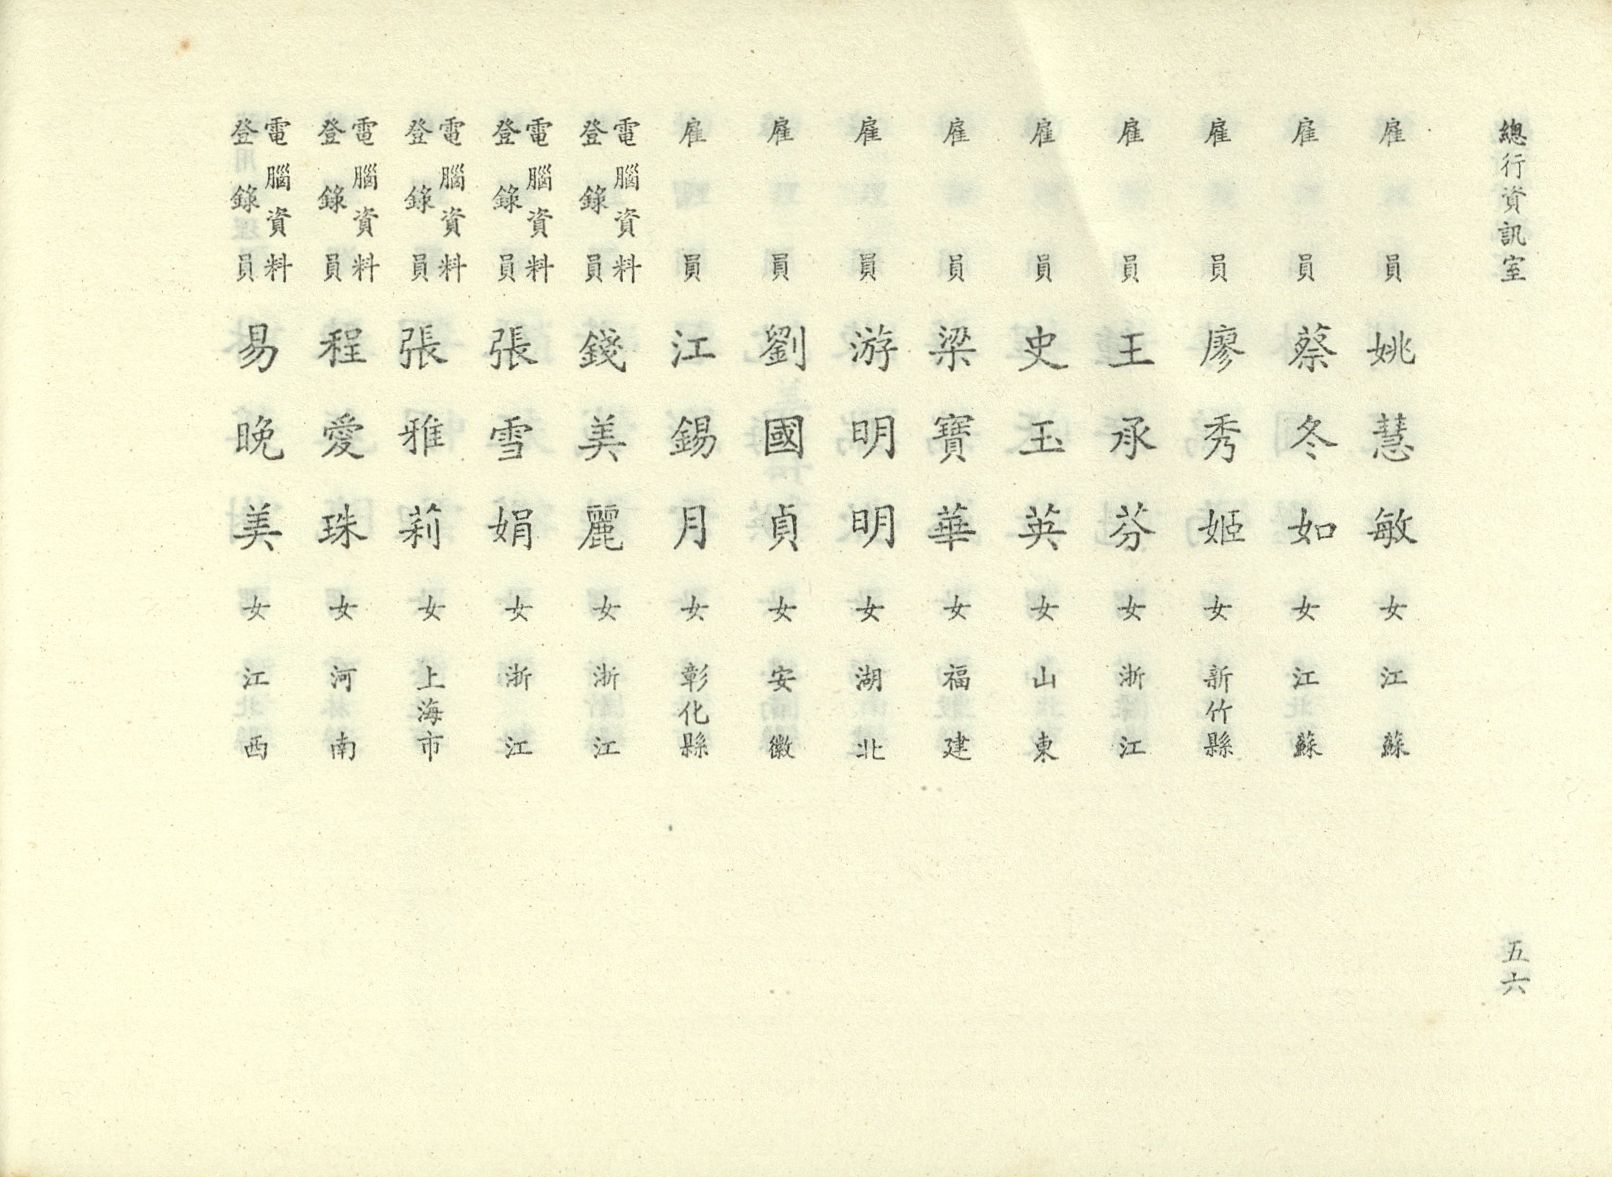 總行資訊室
五六
雇員 姚慧敏 女 江蘇
雇員 蔡冬如 女 江蘇
雇員 廖秀姬 女 新竹縣
雇員 王承芬 女 浙江
雇員 史玉英 女 山東
雇員 梁寶華 女 福建
雇員 游明明 女 湖北
雇員 劉國貞 女 安徽
雇員 江錫月 女 彰化縣
電腦資料登錄員 錢美麗 女 浙江
電腦資料登錄員 張雪娟 女 浙江
電腦資料登錄員 張雅莉 女 上海市
電腦資料登錄員 程愛珠 女 河南
電腦資料登錄員 易晚美 女 江西